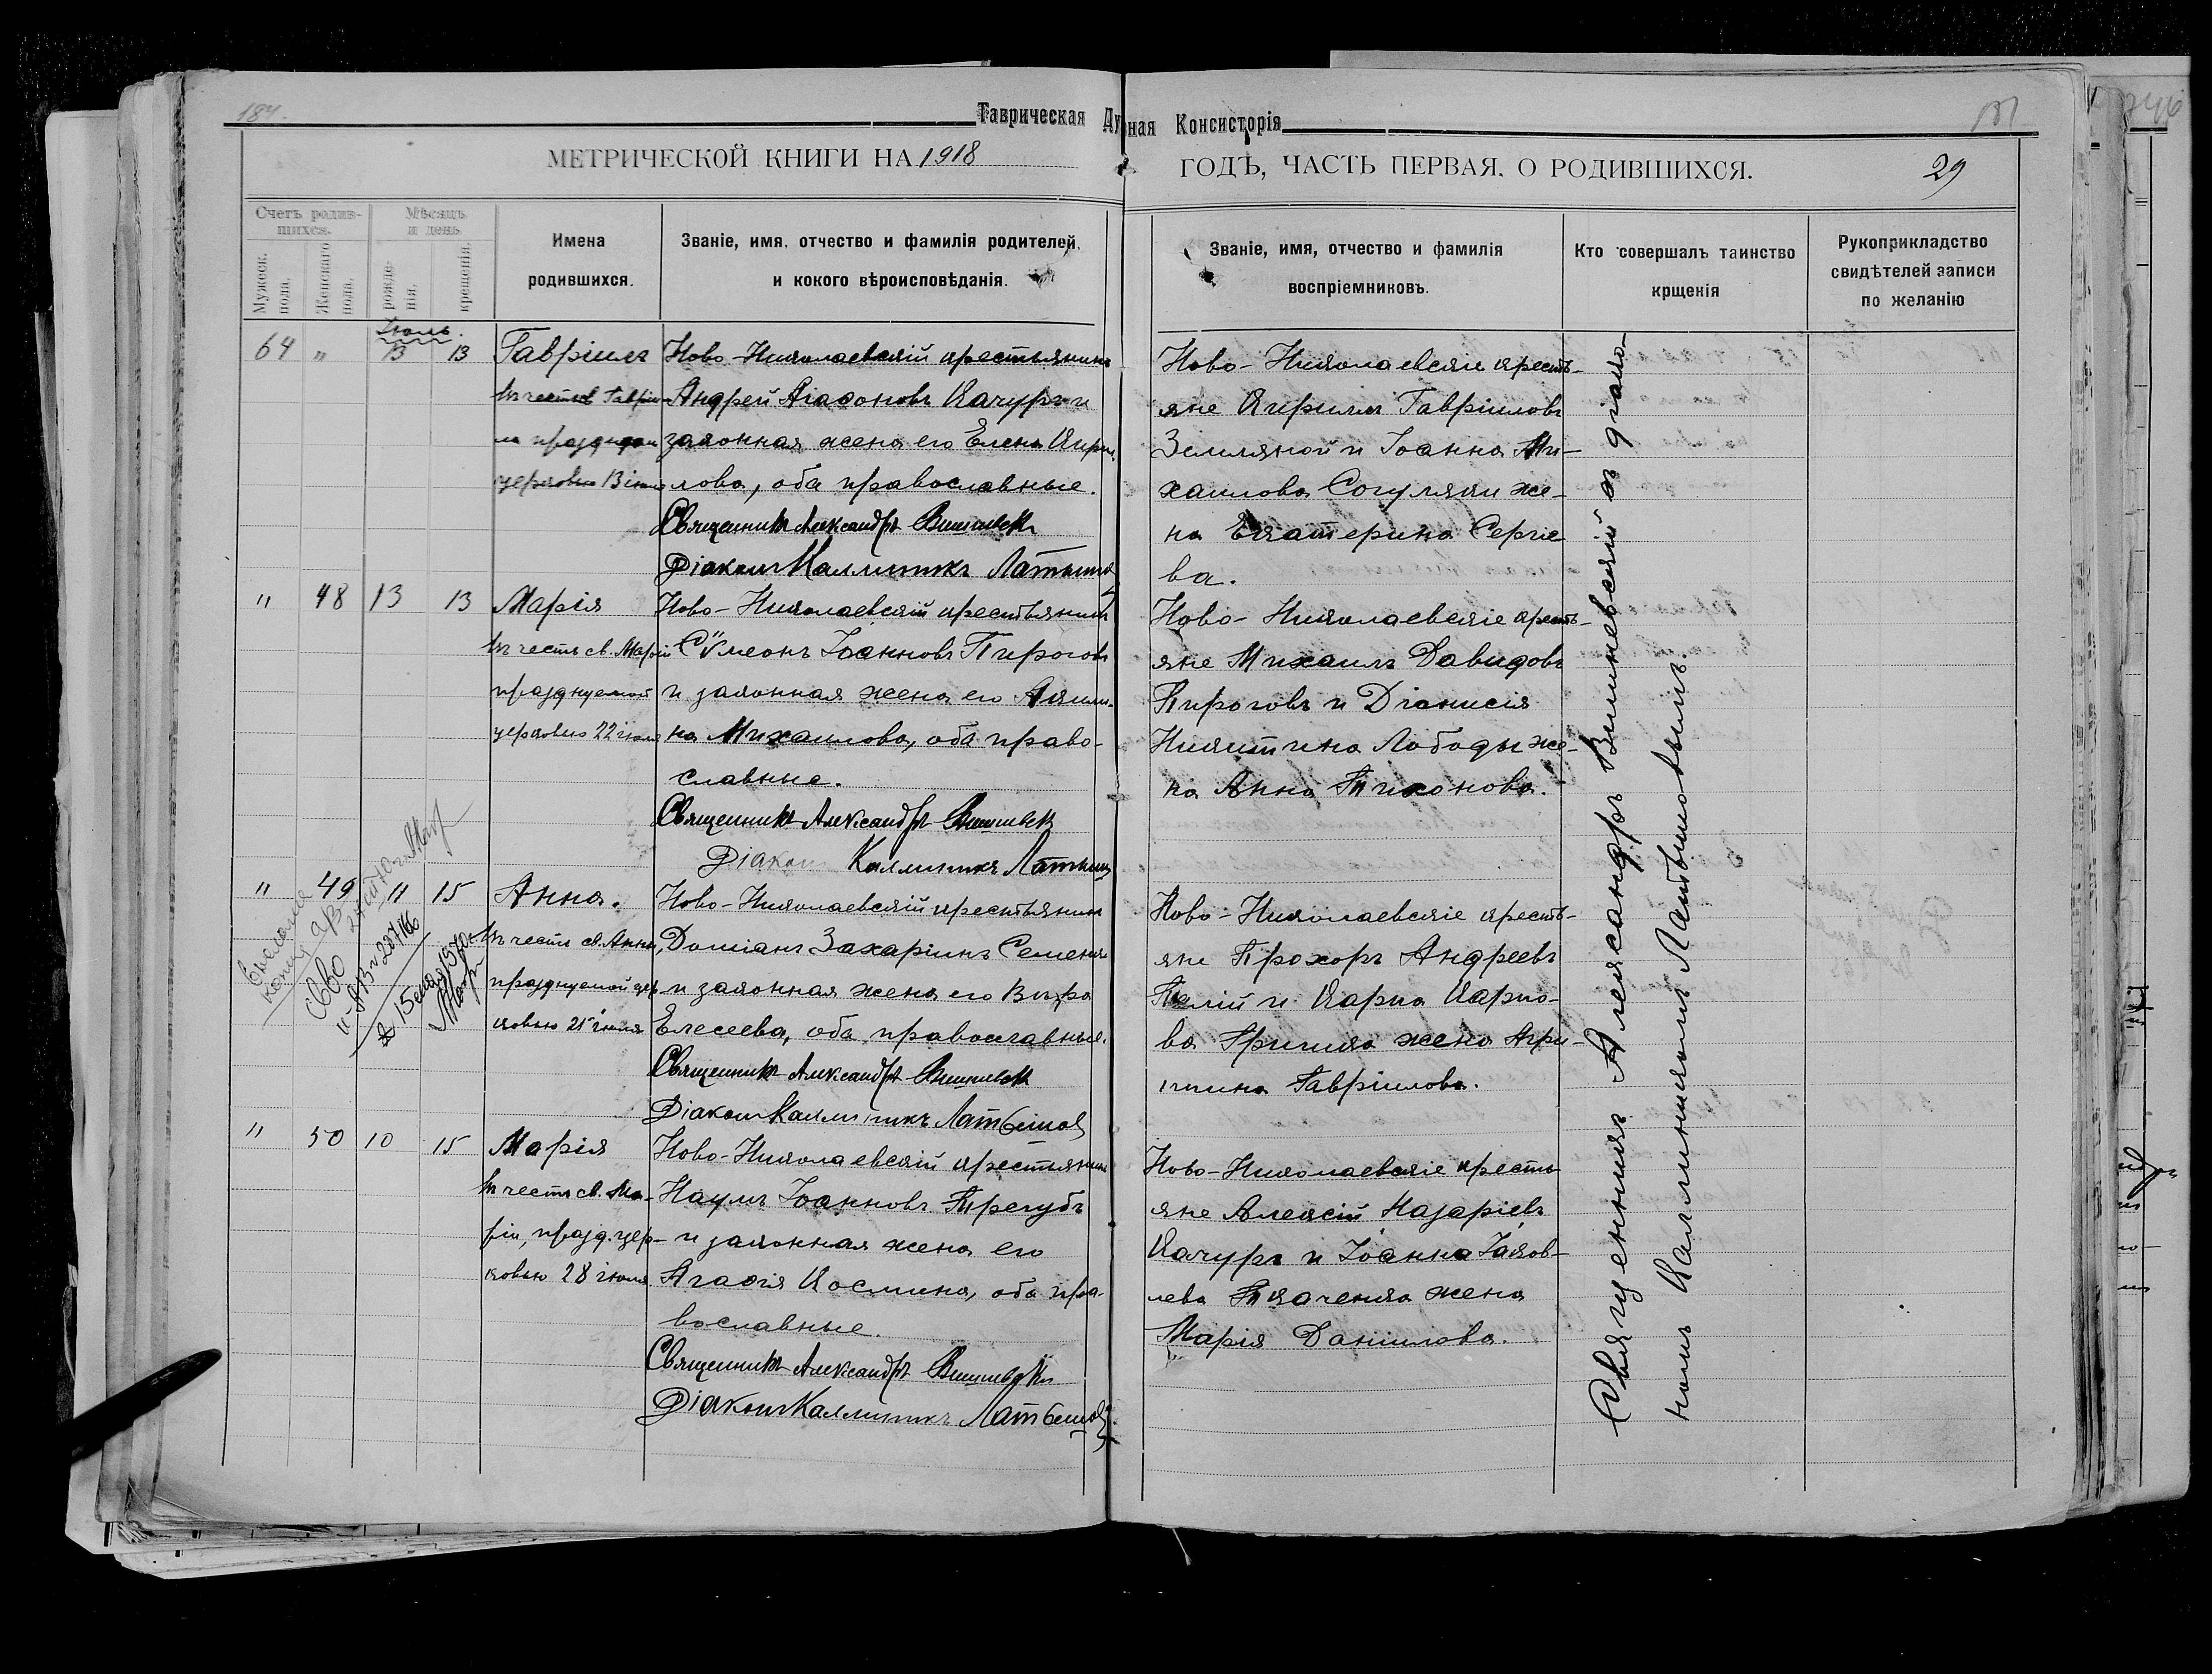 184.
Таврическая Ду
ная Консисторія
МЕТРИЧЕСКОЙ КНИГИ НА 1918
ГОДЪ, ЧАСТЬ ПЕРВАЯ, О РОДИВШИХСЯ.
29
Счетъ родив-
шихся.
Мужеск.
пола.
Женскаго
пола.
Мѣсяцъ
и день
рожде-
нія.
крещенія.
Имена
родившихся.
Званіе, имя, отчество и фамилія родителей,
и кокого вѣроисповѣданія.
Званіе, имя, отчество и фамилія
воспріемниковъ.
Кто совершалъ таинство
крщенія
Рукоприкладство
свидѣтелей записи
по желанію
Іюль.
64 " 13 13
Гавріилъ
въ честь св Гавріи-
ла праздндан
церковью 13 іюля
Ново-Николаевскій крестьянинъ
Андрей Агаѳоновъ Качуръ и
законная жена его Елена Кири-
лова, оба православные.
Священникъ Александръ Вишневск
Діаконъ Каллиникъ Латыш
Ново-Николаевскіе кресть-
яне Кириллъ Гавріиловъ
Земляной и Іоанна Ми-
хаилова Согуляки же-
на Екатерина Сергіе
ва.
" 48 13 13
Марія
въ честь св. Маріи
празднуемой
церковью 22 іюля
Ново-Николаевскій крестьянинъ
Сѵмеонъ Іоанновъ Пироговъ
и законная жена его Акили-
на Михаилова, оба право-
славные.
Священникъ Александръ Вишневск
Діакон Каллиникъ Латыш
Ново-Николаевскіе кресть-
яне Михаилъ Давидовъ
Пироговъ и Діонисія
Никитина Лободы же-
на Анна Тихонова.
" 49 11 15
Анна.
въ честь св. Анны,
празднуемой цер
ковью 25 іюля
Ново-Николаевскій крестьянинъ
Доміанъ Захаріинъ Семеняк
и законная жена его Вѣра
Елесеева, оба православные.
Священникъ Александръ Вишневск
Діаконъ Каллиникъ Латышов
Ново-Николаевскіе кресть-
яне Прохоръ Андреевъ
Палій и Карпа Карпо-
ва Грицика жена Агри-
ппина Гавріилова.
Выслана
копія
15 мая 1570
" 50 10 15
Марія
въ честь св. Ма-
ріи, празд. цер-
ковью 28 іюля
Ново-Николаевскій крестьянинъ
Наумъ Іоанновъ Трегубъ
и законная жена его
Агаѳія Космина, оба пра-
вославные.
Священникъ Александръ Вишневск
Діаконъ Каллиникъ Латышов
Ново-Николаевскіе кресть-
яне Алексій Назаріевъ
Качуръ и Іоанна Іаков-
лева Ткаченка жена
Марія Даніилова.
Священникъ Александръ Вишневскій съ діако-
номъ Каллиникомъ Латышовымъ.